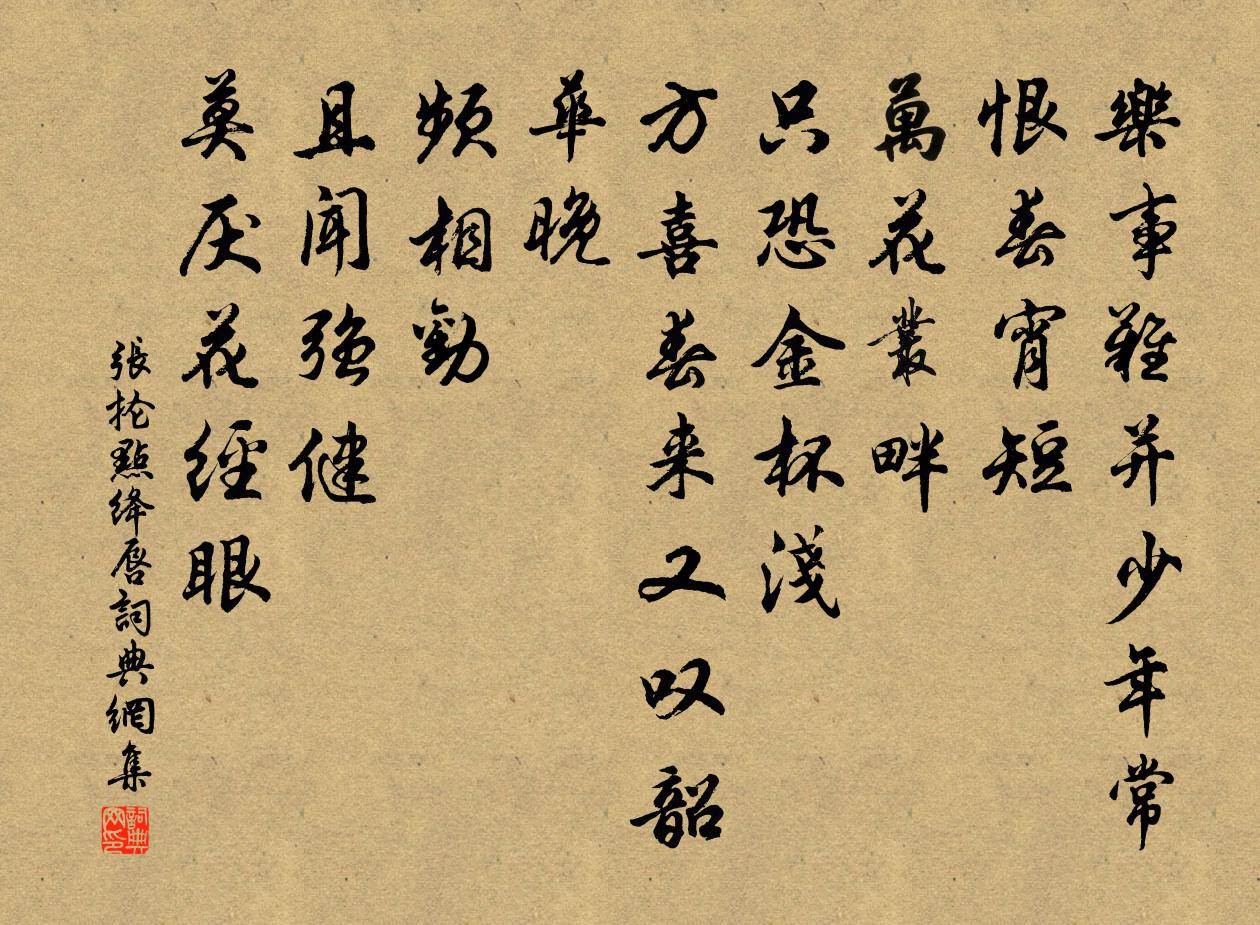 樂事難并少年常
恨春宵短
萬花叢畔
只恐金杯淺
方喜春来又叹韶
華晚
頻相勸
且聞强健
莫厌花經眼
張掄點絳唇詞典網集
詞典网印